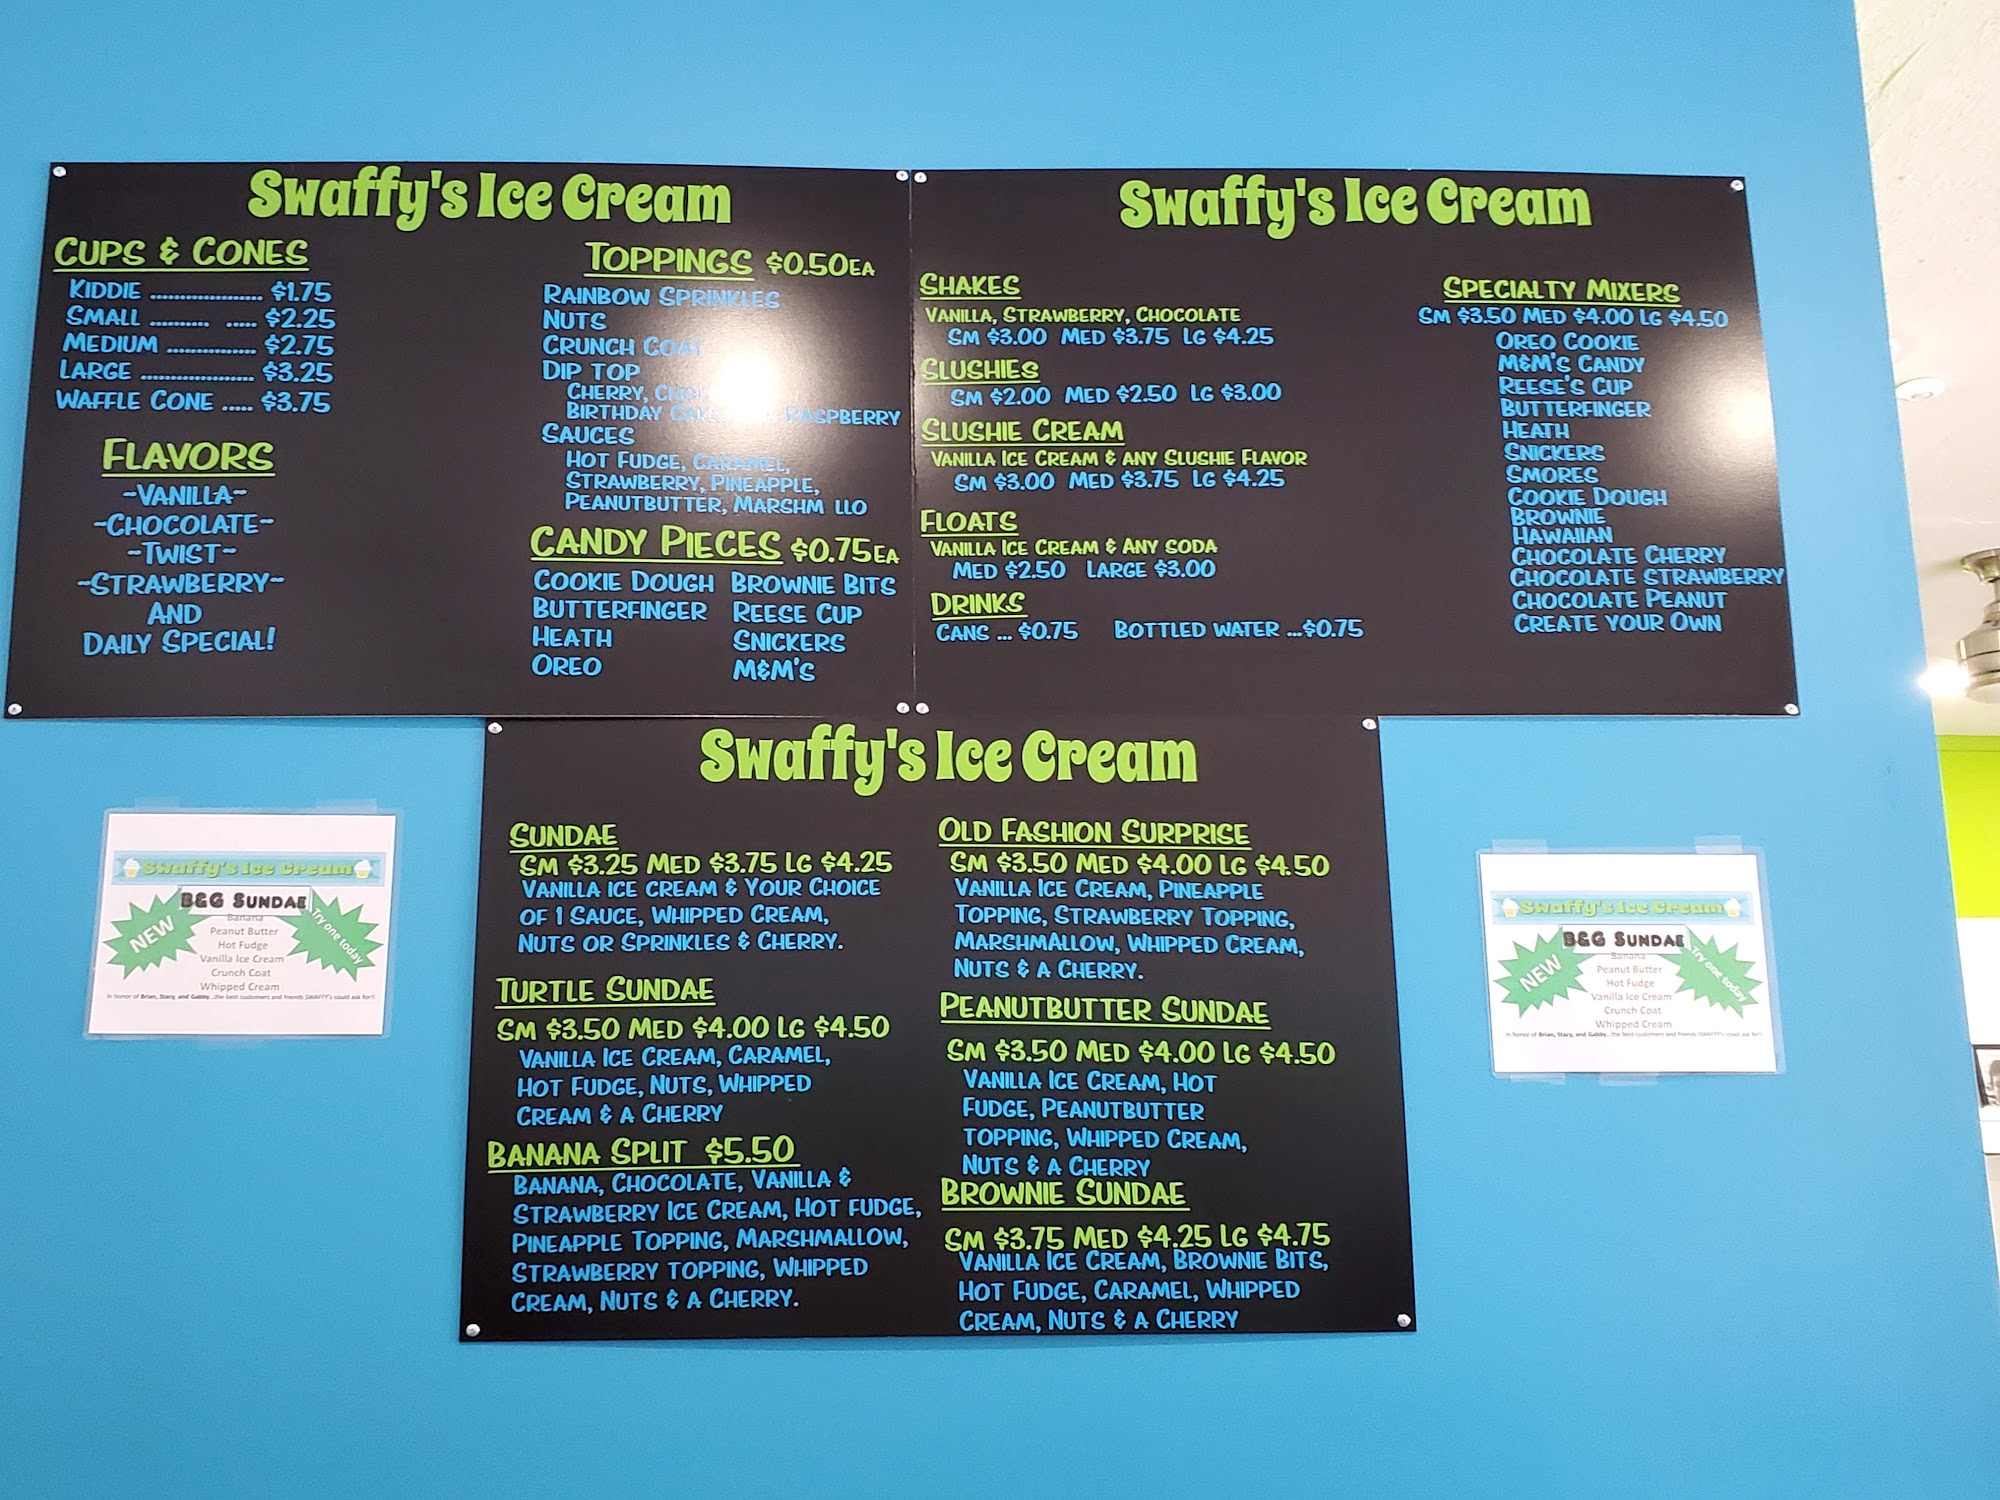 Swaffy's Ice Cream
CUPS & CONES
KIDDIE ................... $1.75
SMALL .......... ..... $2.25
MEDIUM ............... $2.75
LARGE ................... $3.25
WAFFLE CONE ..... $3.75
FLAVORS
~VANILLA~
~CHOCOLATE~
~TWIST~
~STRAWBERRY~
AND
DAILY SPECIAL!
TOPPINGS $0.50EA
RAINBOW SPRINKLES
NUTS
CRUNCH COAT
DIP TOP
CHERRY,
BIRTHDAY RASPBERRY
SAUCES
HOT FUDGE, CARAMEL,
STRAWBERRY, PINEAPPLE,
PEANUTBUTTER, MARSHM LLO
CANDY PIECES $0.75EA
COOKIE DOUGH BROWNIE BITS
BUTTERFINGER REESE CUP
HEATH SNICKERS
OREO M&M'S
Swaffy's Ice Cream
SHAKES
VANILLA, STRAWBERRY, CHOCOLATE
SM $3.00 MED $3.75 LG $4.25
SLUSHIES
SM $2.00 MED $2.50 LG $3.00
SLUSHIE CREAM
VANILLA ICE CREAM & ANY SLUSHIE FLAVOR
SM $3.00 MED $3.75 LG $4.25
FLOATS
VANILLA ICE CREAM & ANY SODA
MED $2.50 LARGE $3.00
DRINKS
CANS ... $0.75 BOTTLED WATER ...$0.75
SPECIALTY MIXERS
SM $3.50 MED $4.00 LG $4.50
OREO COOKIE
M&M'S CANDY
REESE'S CUP
BUTTERFINGER
HEATH
SNICKERS
SMORES
COOKIE DOUGH
BROWNIE
HAWAIIAN
CHOCOLATE CHERRY
CHOCOLATE STRAWBERRY
CHOCOLATE PEANUT
CREATE YOUR OWN
Swaffy's Ice Cream
SUNDAE
SM $3.25 MED $3.75 LG $4.25
VANILLA ICE CREAM & YOUR CHOICE
OF 1 SAUCE, WHIPPED CREAM,
NUTS OR SPRINKLES & CHERRY.
TURTLE SUNDAE
SM $3.50 MED $4.00 LG $4.50
VANILLA ICE CREAM, CARAMEL,
HOT FUDGE, NUTS, WHIPPED
CREAM & A CHERRY
BANANA SPLIT $5.50
BANANA, CHOCOLATE, VANILLA &
STRAWBERRY ICE CREAM, HOT FUDGE,
PINEAPPLE TOPPING, MARSHMALLOW,
STRAWBERRY TOPPING, WHIPPED
CREAM, NUTS & A CHERRY.
OLD FASHION SURPRISE
SM $3.50 MED $4.00 LG $4.50
VANILLA ICE CREAM, PINEAPPLE
TOPPING, STRAWBERRY TOPPING,
MARSHMALLOW, WHIPPED CREAM,
NUTS & A CHERRY.
PEANUTBUTTER SUNDAE
SM $3.50 MED $4.00 LG $4.50
VANILLA ICE CREAM, HOT
FUDGE, PEANUTBUTTER
TOPPING, WHIPPED CREAM,
NUTS & A CHERRY
BROWNIE SUNDAE
SM $3.75 MED $4.25 LG $4.75
VANILLA ICE CREAM, BROWNIE BITS,
HOT FUDGE, CARAMEL, WHIPPED
CREAM, NUTS & A CHERRY
Swaffy's Ice Cream
B&G SUNDAE
NEW
Try one today
Banana
Peanut Butter
Hot Fudge
Vanilla Ice Cream
Crunch Coat
Whipped Cream
In honor of Brian, Stacy, and Gabby...the best customers and friends SWAFFY's could ask for!!
Swaffy's Ice Cream
B&G SUNDAE
NEW
Try one today
Banana
Peanut Butter
Hot Fudge
Vanilla Ice Cream
Crunch Coat
Whipped Cream
In honor of Brian, Stacy, and Gabby...the best customers and friends SWAFFY's could ask for!!